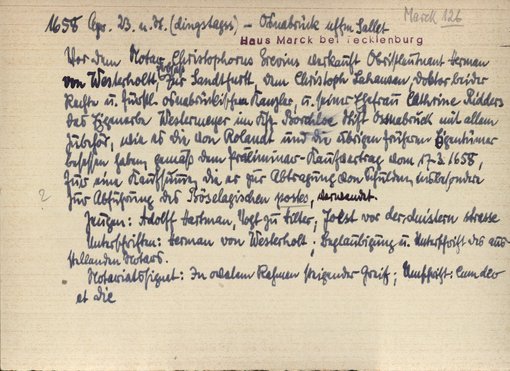 Marck 126
1658 Apr. 23. n. St. (dingstages) – Osnabrück uffm Sallet
Haus Marck bei Tecklenburg
Vor dem Notar Christophorus verkauft Obristleutnant Herman
von Westerholt, zur Landfurtt, dem Christoph Lahausen, doktor beider
Rechte u. fürstl. osnabrückischen Kanzler, u. seiner Ehefrau Cathrine Ridders
das Eigenerbe Westermeyer im Ksp. Borchloe Stift Osnabrück mit allem
Zubehör, wie es die von Rolandt und die übrigen früheren Eigentümer
besessen haben, gemäss dem präliminar-Kaufvertrag vom 17.3.1658,
für eine Kaufsumme, die er zur Abtragung von Schulden, insbesondere
zur Abführung des Böselagischen postes, verwendet.
Zeugen: Adolff Hartman, Vogt zu ; Jobst vor der duistern strasse
Unterschriften: Herman von Westerholt; Beglaubigung u. Unterschrift des aus-
stellenden Notars.
Notariatssignet: In ovalem Rahmen steigender Greif; Umschrift: Cum deo
et die
2